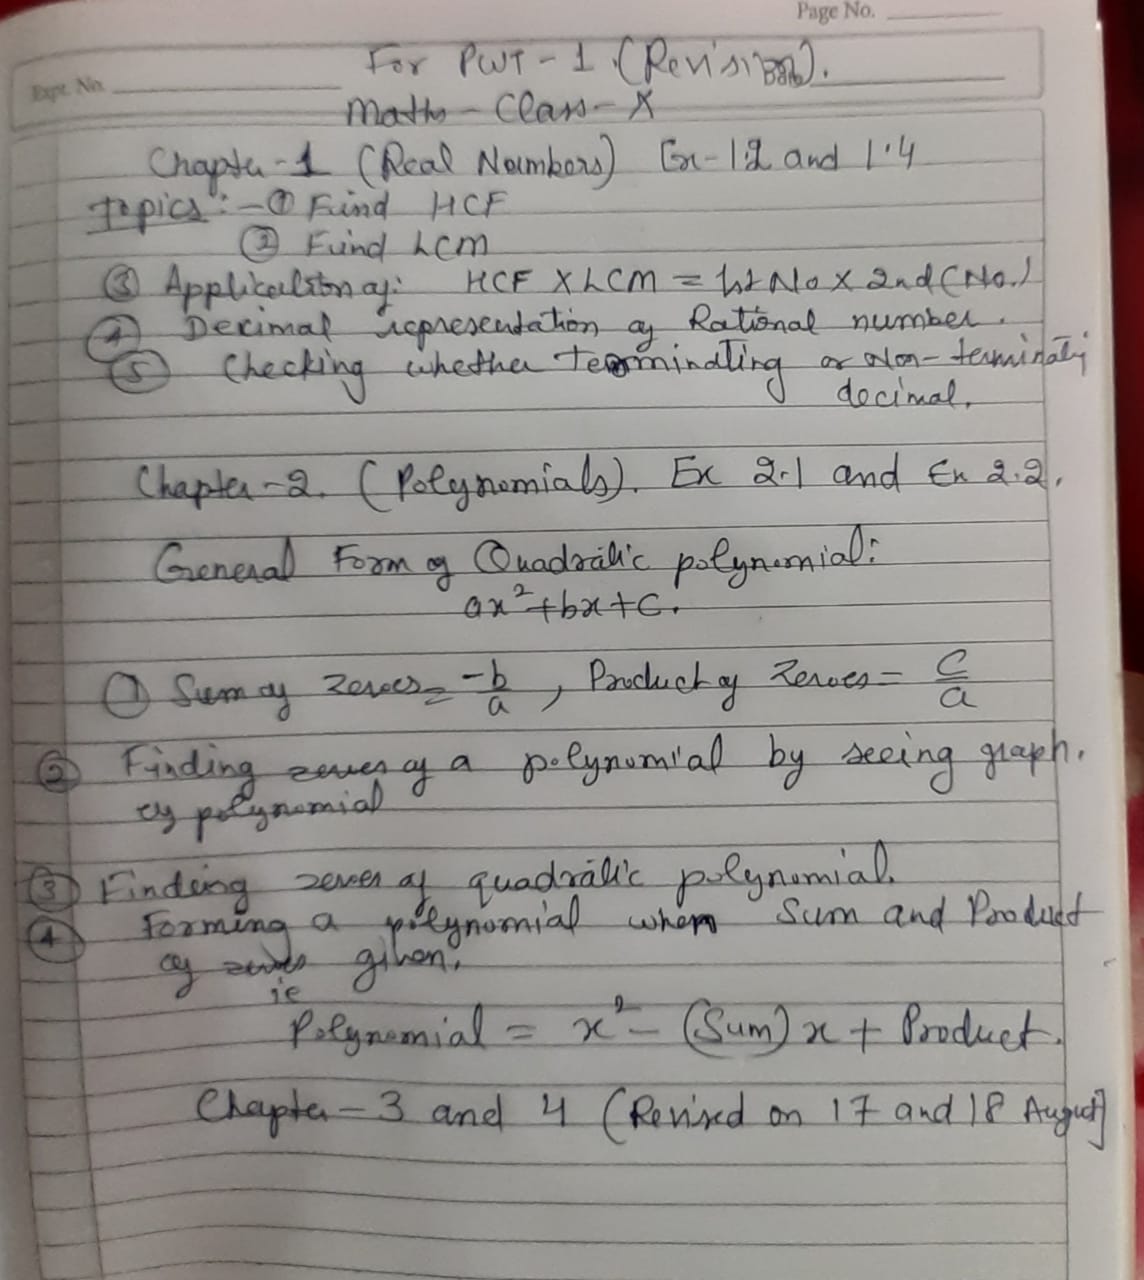 Page No.
Expt. No.
For PWT-1 (Revision).
Maths - Class - X
Chapter-1 (Real Numbers) Ex-1.2 and 1.4
Topics:- ① Find HCF
② Find LCM
③ Application of: HCF X LCM = 1st No X 2nd (No.)
④ Decimal representation of Rational number.
⑤ Checking whether terminating or Non-terminating
decimal.
Chapter-2. (Polynomials). Ex 2.1 and Ex 2.2.
General Form of Quadratic polynomial:
ax²+bx+c.
① Sum of Zeroes = -b/a, Product of Zeroes = c/a
② Finding zeroes of a polynomial by seeing graph.
of polynomial
③ Finding zeroes of quadratic polynomial.
④ Forming a polynomial when Sum and Product
of zeroes given.
ie
Polynomial = x² - (Sum) x + Product.
Chapter-3 and 4 (Revised on 17 and 18 August)